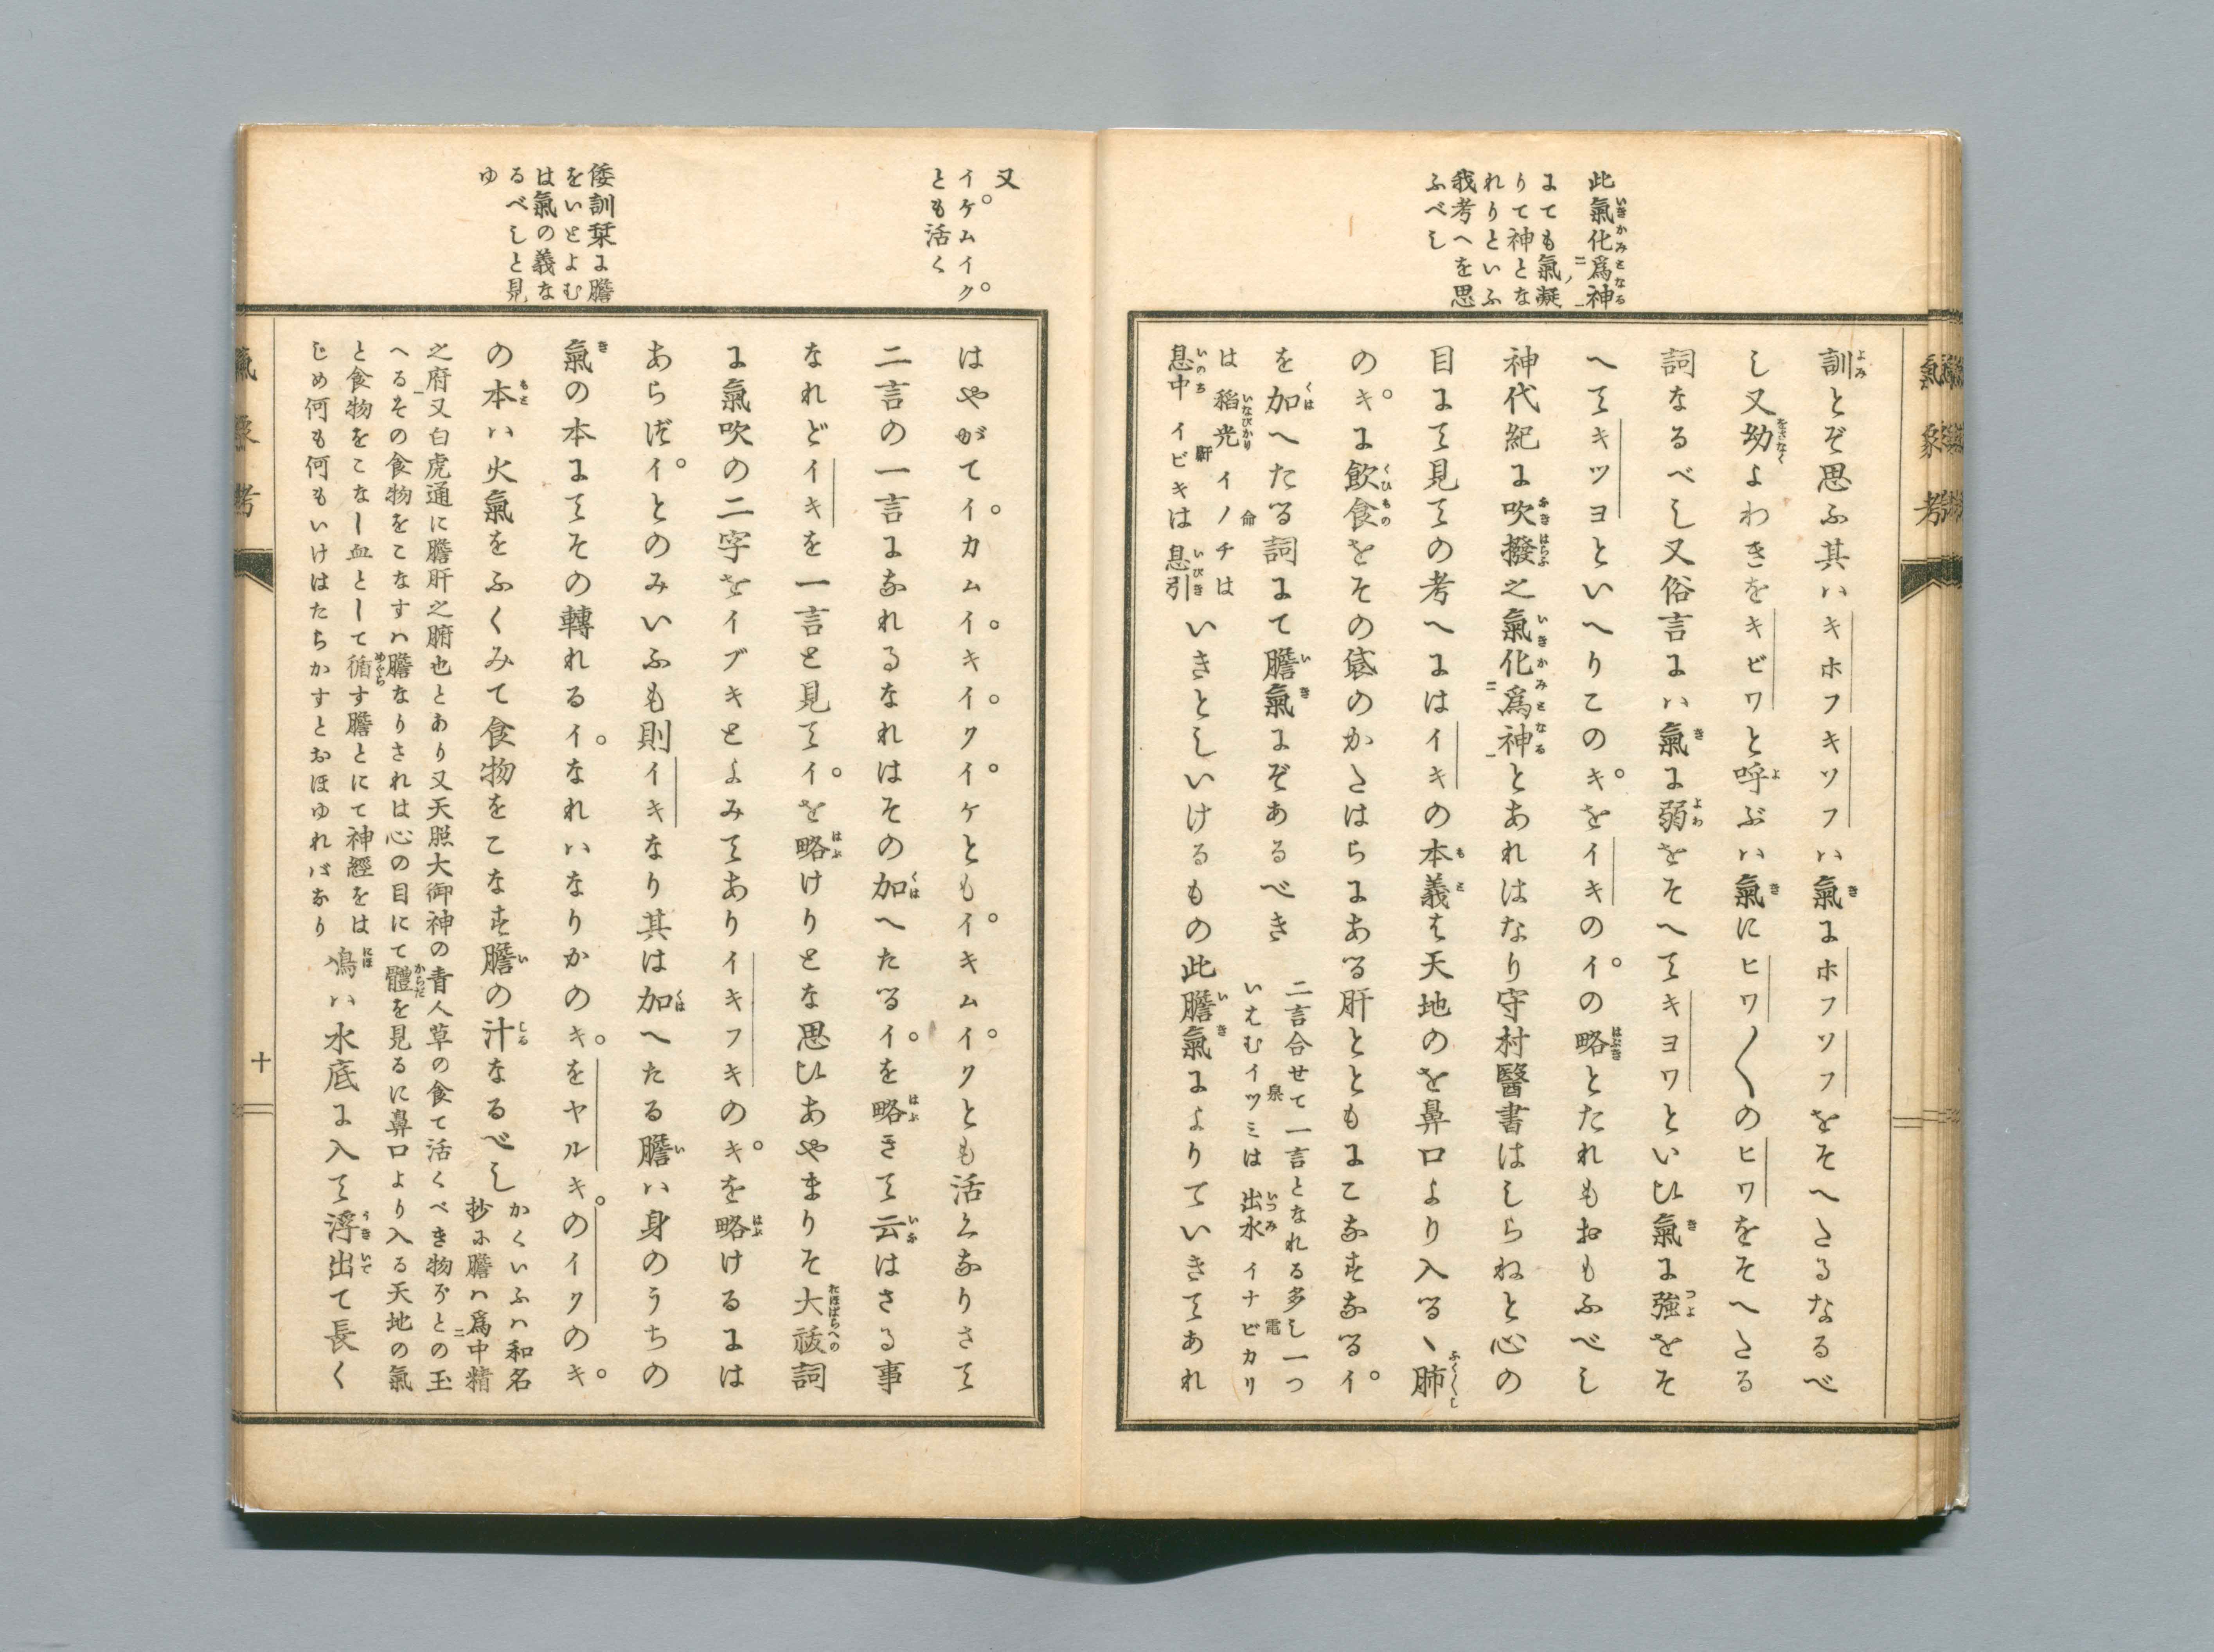 氣象考
此氣化爲神
まても氣ノ凝
りて神とな
れりといふ
我考へを思
ふべし
訓とぞ思ふ其ハキホフキソフハ氣まホフソフをそへさるなるべ
し又幼よわきをキビワと呼ぶハ氣にヒワ〱のヒワをそへさる
詞なるべし又俗言まハ氣ま弱をそへてキヨワといひ氣ま強をそ
へてキツヨといへりこのキをイキのイの略とたれもおもふべし
神代紀ま吹撥之氣化爲神とあれはなり守村醫書はしらねと心の
目まて見ての考へまはイキの本義も天地のを鼻口より入るヽ肺
のキま飲食をその袋のかさはらまある肝とともまこなすなるイ
を加へたる詞まて膽氣まぞあるべき
二言合せて一言となれる多し一つ
いはむイツミは出水イナビカリ
は稻光イノチは
息中イビキは息引
いきとしいけるもの此膽氣まよりていきてあれ
又
イケムイク
とも活く
倭訓栞ま膽
をいとよむ
は氣の義な
るべしと見
ゆ
はやがてイカムイキイクイケともイキムイクとも活くなりさて
二言の一言まなれるなれはその加へたるイを略きて云はさる事
なれどイキを一言と見てイを略けりとな思ひあやまりそ大祓詞
ま氣吹の二字をイブキとよみてありイキフキのキを略けるまは
あらずイとのみいふも則イキなり其は加へたる膽ハ身のうちの
氣の本まてその轉れるイなれハなりかのキをヤルキのイクのキ
の本ハ火氣をふくみて食物をこなす膽の汁なるべし
かくいふハ和名
抄ホ膽ハ爲中精
之府又白虎通に膽肝之腑也とあり又天照大御神の青人草の食て活くべき物ぞとの玉
へるその食物をこなすハ膽なりされは心の目にて體を見るに鼻口より入る天地の氣
と食物をこなし血として循す膽とにて神經をは
じめ何も何もいけはたらかすとおほゆれバなり
鳰ハ水底ま入て浮出て長く
氣象考
十